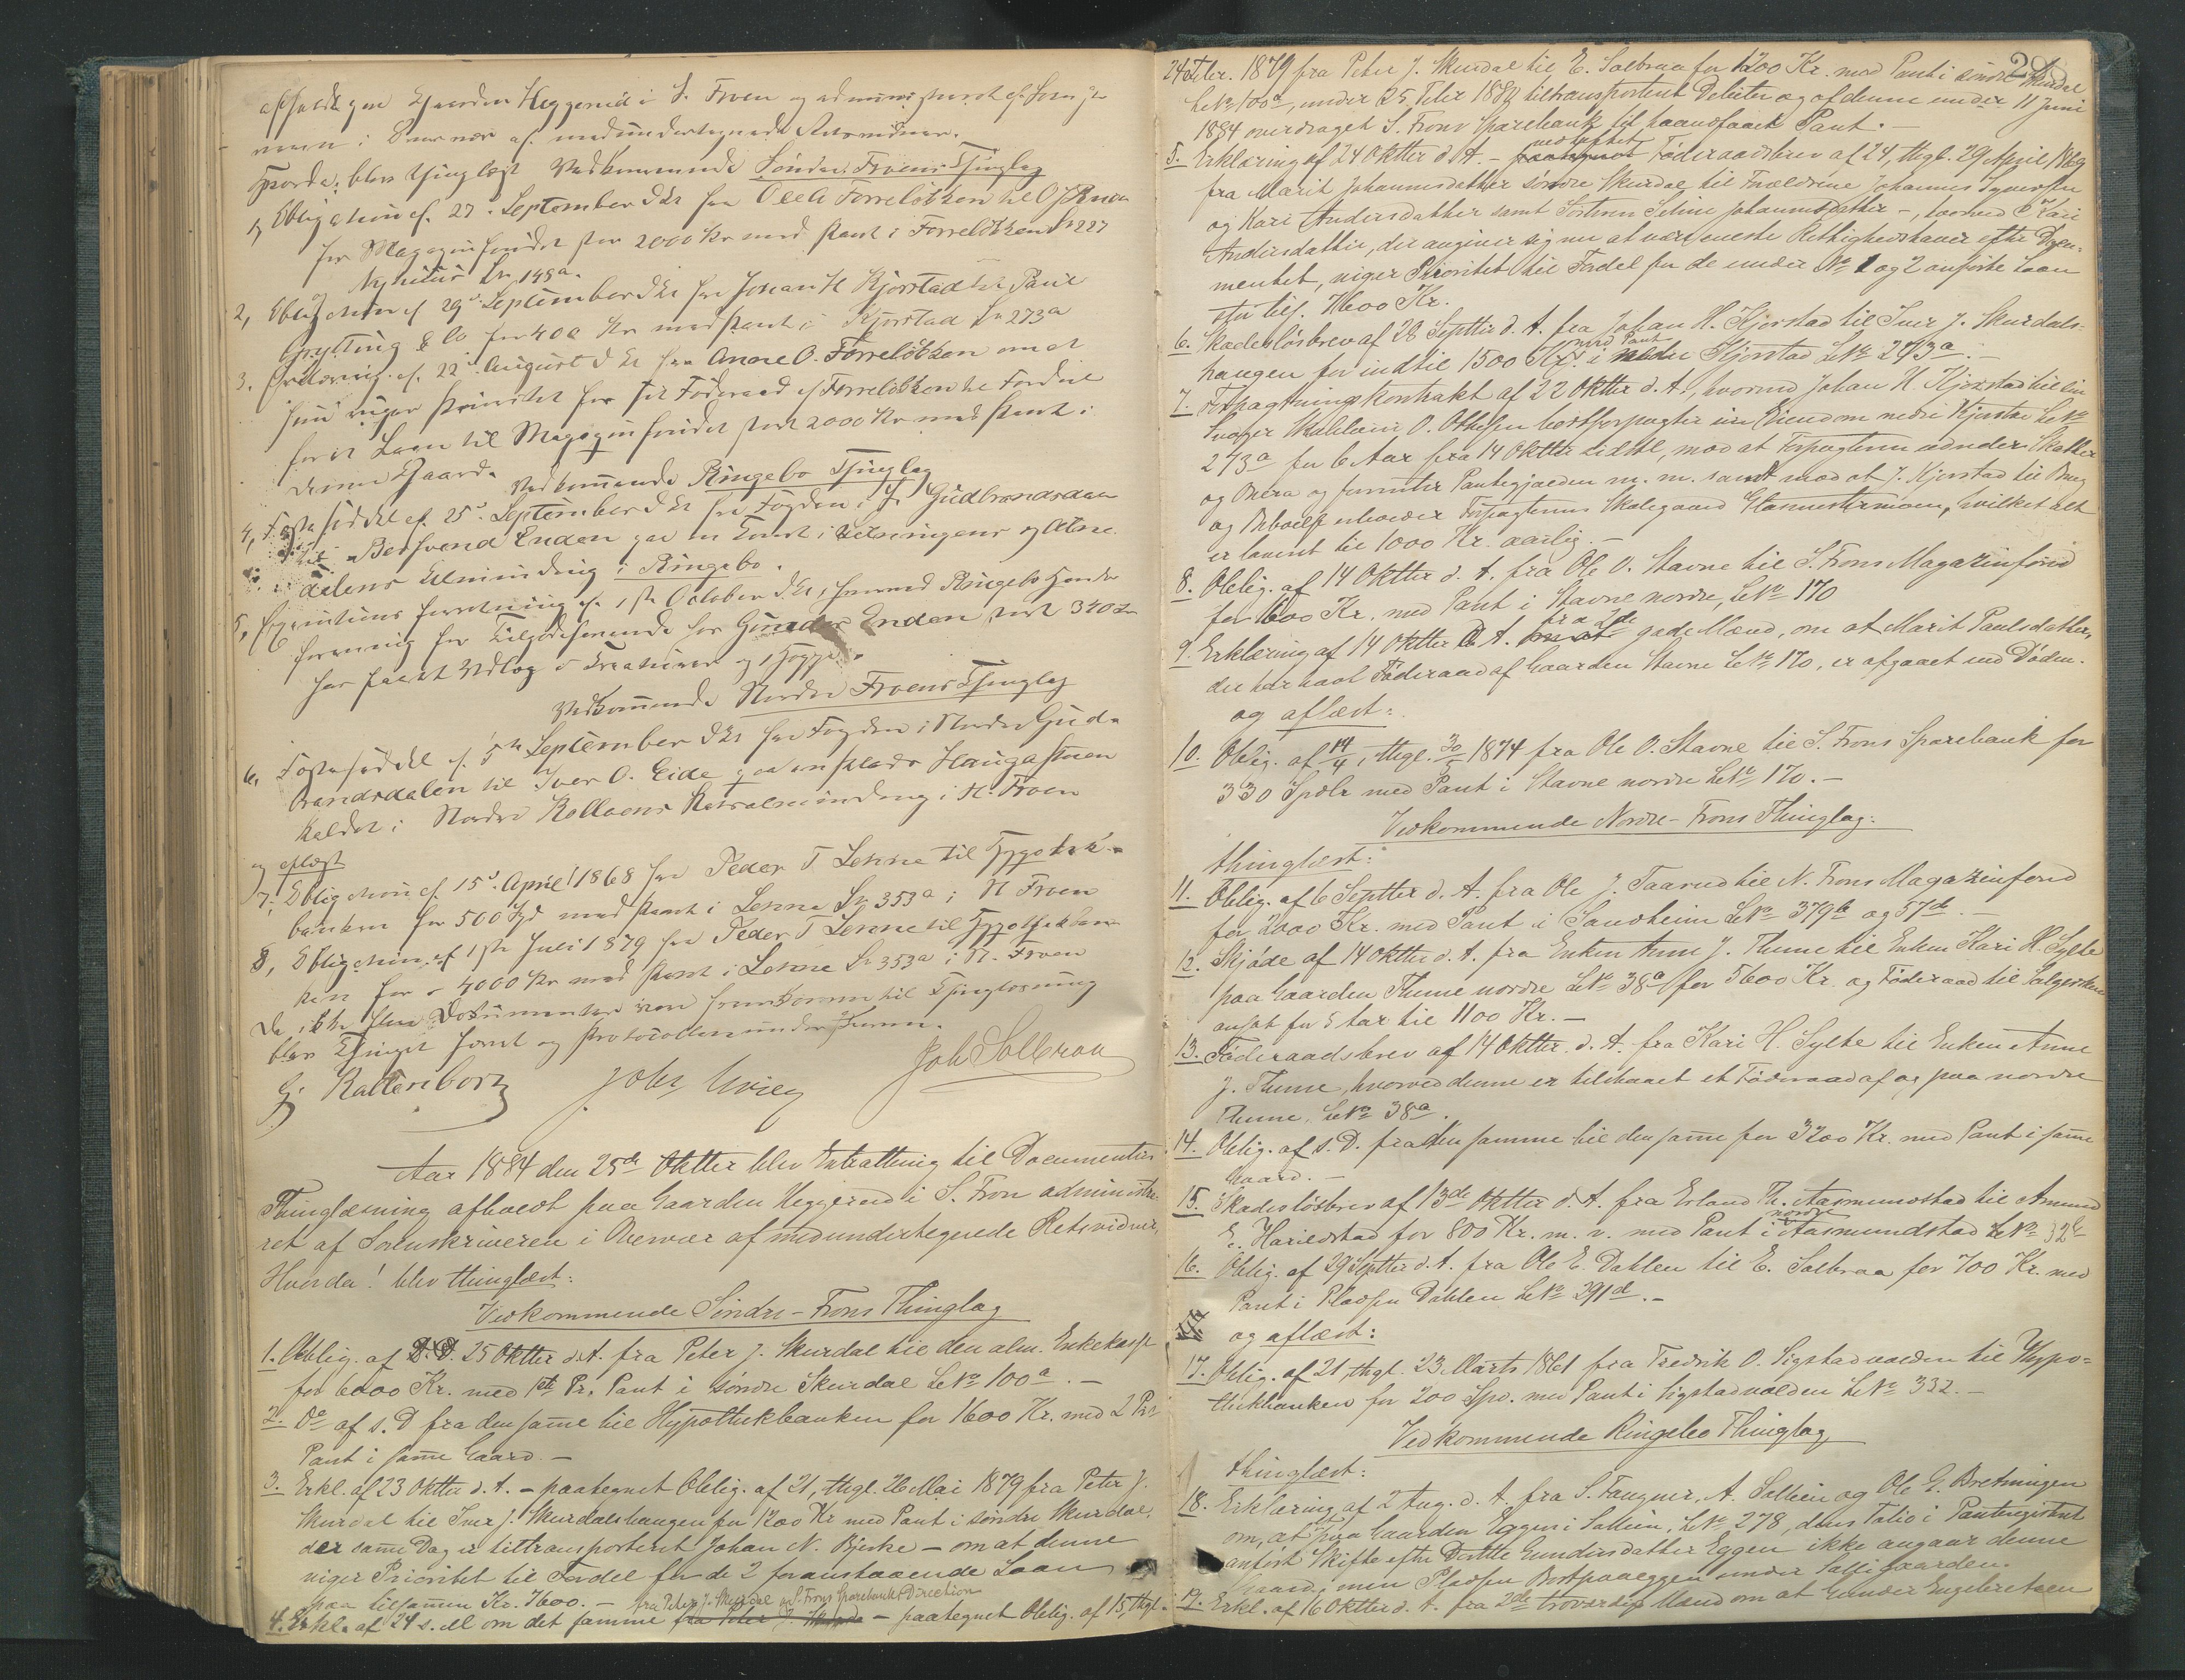 afholdt paa Gaarden Heggerud i S. Froen og administreret af Sorenskri
veren i Overvær af medundertegnede Retsvidner.
Hvorda: blev thinglæst Vedkommende Søndre Froens Thinglag
1, Obligation af 27. September d A fra Ole Forreløkken til O J Ruen
for Magazinfondet stor 2000 Kr med Pant i Forreløkken Ln 227
Nyhuus Ln 148a.
2, Obligation af 29. September d A fra Johan H Kjørstad til Paul
Grytting & Co for 400 Kr med Pant i Kjørstad Ln 273a
3. Erklæring af 22. August d A fra Anne O. Forreløkken om at
hun viger Prioritet for sit Føderaad af Forreløkken til Fordeel
for et Laan til Magazinfondet stort 2000 Kr med Pant i
denne Gaard.
Vedkommende Ringebo Thinglag
4, Fæstesæddel af 25. September d A fra Fogden i N Gudbrandsdalen
til Berhvend Enden paa en Tomt i
dalens Alminding i Ringebo.
5, Exequutions forretning af 1ste October d A, hvorved Ringebo Handels
forening for Tilgodehavende hos Gunder Enden stort 340 Kr
har faaet Udlæg i Kreaturer og Hoppe.
Vedkommende Nordre Froens Thinglag
6, Fæstesæddel af 5te September d A fra Fogden i Nordre Gud-
brandsdalen til Iver O. Eide paa en Plads Haugastuen
kaldet i Nordre Kollaens Statsalminding i N. Froen
og aflæst
7, Obligation af 15. April 1868 fra Peder T Lenne til Hypothek-
banken for 500 Spd med Pant i Lenne Ln 353a i N Froen
8, Obligation af 1ste Juli 1879 fra Peder T Lenne til Hypothekban-
ken for 4000 Kr med Pant i Lenne Ln 353a i N. Froen
Da ikke flere Dokumenter vare fremkomne til Thinglæsning
blev Thinget hævet og Protocollen underskreven.
G. Rattenborg Johs Joh Solbraa
Aar 1884 den 25de Oktbr blev Extratthing til Documenters
Thinglæsning afholdt paa Gaarden Heggerud i S. Fron administre-
ret af Sorenskriveren i Overvær af medundertegnede Retsvidner,
Hvorda! blev thinglæst:
Vedkommende Søndre-Frons Thinglag
1. Oblig. af D. D. 25 Oktbr d. A. fra Peter J. Skurdal til den alm. Enkekasse
for 6000 Kr. med 1st Pr. Pant i søndre Skurdal LNo 100a. –
2. Do af s. D fra den samme til Hypothekbanken for 1600 Kr. med 2 Pr.
Pant i samme Gaard. –
3. Erkl. af 23 Oktbr d. A. – paategnet Oblig. af 21, thgl. 26 Mai 1879 fra Peter J.
Skurdal til Iver J. Skurdalshaugen for 1200 Kr med Pant i søndre Skurdal,
der samme Dag er tiltransporteret Johan N. Bjerke – om at denne
viger Prioritet til Fordel for de 2 foranstaaende Laan
paa tilsammen Kr. 7600. – fra Peter J. Skurdal og S. Frons Sparebanks Direction
4. Erkl. af 24 s. M om det samme fra Peter J. Skurdal – paategnet Oblig. af 15, thgl.
24 Febr. 1879 fra Peter J. Skurdal til E. Solbraa for 1200 Kr. med Pant i søndre Skurdal
LNo 100a, under 25 Febr 1880 tiltransporteret Debitor og af denne under 11 Juni
1884 overdraget S. Frons Sparebank til haandfaaet Pant. –
5. Erklæring af 24 Oktbr d. A. – vedheftet Føderaadsbrev af 24, thgl. 29 April 1869
fra Marit Johannesdatter søndre Skurdal til Forældrene Johannes Syversen
og Kari Andersdatter samt Søsteren Seline Johannesdatter –, hvorved Kari
Andersdatter, der angiver sig nu at være eneste Rettighedshaver efter Doku-
mentet, viger Prioritet til Fordel for de under No 1 og 2 anførte Laan
stor tils. 7600 Kr.
6. Skadesløsbrev af 28 Septbr d. A. fra Johan H. Kjørstad til Iver J. Skurdals-
haugen for indtil 1500 Kr. med Pant i nedre Kjørstad LNo 273a. –
7. Forpagtningskontrakt af 22 Oktbr d. A., hvorved Johan H. Kjørstad til sin
Svoger Skolelærer O. Ottesen bortforpagter sin Eiendom nedre Kjørstad LNo
273a for 6 Aar fra 14 Oktbr sidstl., mod at Forpagteren udreder Skatter
og Onera og forrenter Pantegjælden m. m. samt mod at J. Kjørstad til Brug
og Beboelse erholder Forpagterens Skolegaard Glasmestermoen, hvilket alt
er taxeret til 1000 Kr. aarlig. –
8. Oblig. af 14 Oktbr d. A. fra Ole O. Stavne til S. Frons Magazinfond
for 1600 Kr. med Pant i Stavne nordre, LNo 170
9. Erklæring af 14 Oktbr d. A. fra 2de gode Mænd, om at Marit Paulsdatter,
der har havt Føderaad af Gaarden Stavne LNo 170, er afgaaet ved Døden.
og aflæst:
10. Oblig. af 14/4, thgl. 30/5 1874 fra Ole O. Stavne til S. Frons Sparebank for
330 Spdlr med Pant i Stavne nordre LNo 170. –
Vedkommende Nordre-Frons Thinglag:
thinglæst:
11. Oblig. af 6 Septbr d. A. fra Ole J. Taarud til N. Frons Magazinfond
for 2000 Kr. med Pant i Sandheim LNo 379b og 57d. –
12. Skjøde af 14 Oktbr d. A. fra Enken Anne J. Thune til Enken Kari H. Sylte
paa Gaarden Thune nordre LNo 38a for 5600 Kr. og Føderaad til Sælgersken
ansat for 5 Aar til 1100 Kr. –
13. Føderaadsbrev af 14 Oktbr. d. A. fra Kari H. Sylte til Enken Anne
J. Thune, hvorved denne er tilstaaet et Føderaad af og paa nordre
Thune, LNo 38a.
14. Oblig. af s. D. fra den samme til den samme for 3200 Kr. med Pant i samme
Gaard. –
15. Skadesløsbrev af 13de Oktbr d. A. fra Erland Th. Aasmundstad til Amund
E. Harildstad for 800 Kr. m. v. med Pant i nordre Aasmundstad LNo 32b
16. Oblig. af 29 Septbr d. A. fra Ole E. Dahlen til E. Solbraa for 700 Kr. med
Pant i Pladsen Dahlen LNo 291d. –
og aflæst:
17. Oblig. af 21, thgl. 23 Marts 1861 fra Fredrik O. Sigstadvolden til Hypo-
thekbanken for 200 Spd. med Pant i Sigstadvolden LNo 332. –
Vedkommende Ringebo Thinglag
thinglæst:
18. Erklæring af 2 Aug. d. A. fra S. Faugner, A. Solheim og Ole G. Bretningen
om, at det paa Gaarden Eggen i Sollien, LNo 278, dens Folio i Pantregistret
anført Skifte efter Dortte Gundersdatter Eggen ikke angaar denne
Gaard, men Pladsen under Gaarden.
19. Erkl. af 16 Oktbr d. A. fra 2de troværdige Mænd om at Gunder Engebretsen